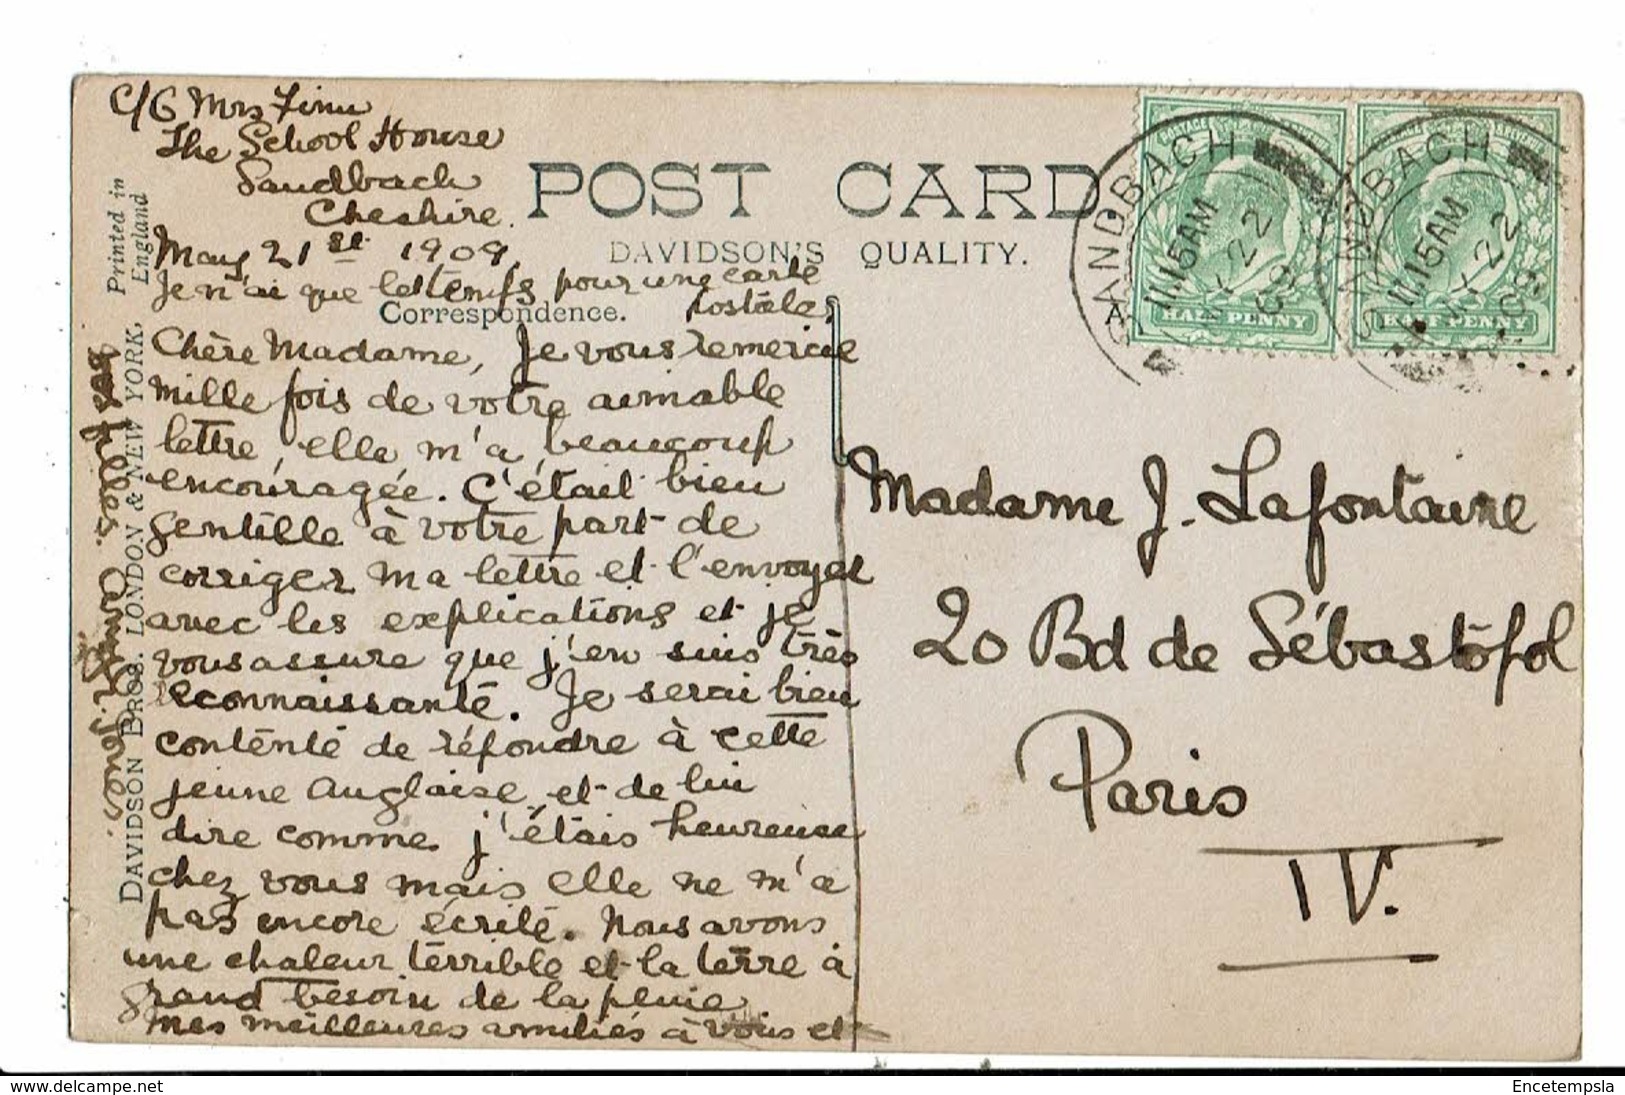 C/o Mrs Finn
The School House
Sandbach
Cheshire.
May 21st 1909.
Je n'ai que le temps pour une carte
postale.
POST CARD.
DAVIDSON'S QUALITY.
Correspondence.
Printed in
England
DAVIDSON BROS. LONDON & NEW YORK.
Chère Madame, Je vous remercie
mille fois de votre aimable
lettre, elle m'a beaucoup
encouragée. C'était bien
gentille à votre part de
corriger ma lettre et l'envoyer
avec les explications et je
vous assure que j'en suis très
reconnaissante. Je serai bien
contente de répondre à cette
jeune Anglaise, et de lui
dire comme j'étais heureuse
chez vous mais elle ne m'a
pas encore écrite. Nous avons
une chaleur terrible et la terre a
grand besoin de la pluie
Mes meilleures amitiés à vous et
vos filles.
Madame J. Lafontaine
20 Bd de Sébastopol
Paris
IV.
SANDBACH
11.15 AM
22
09
HALF PENNY
SANDBACH
11.15 AM
22
09
HALF PENNY
Encetempsla